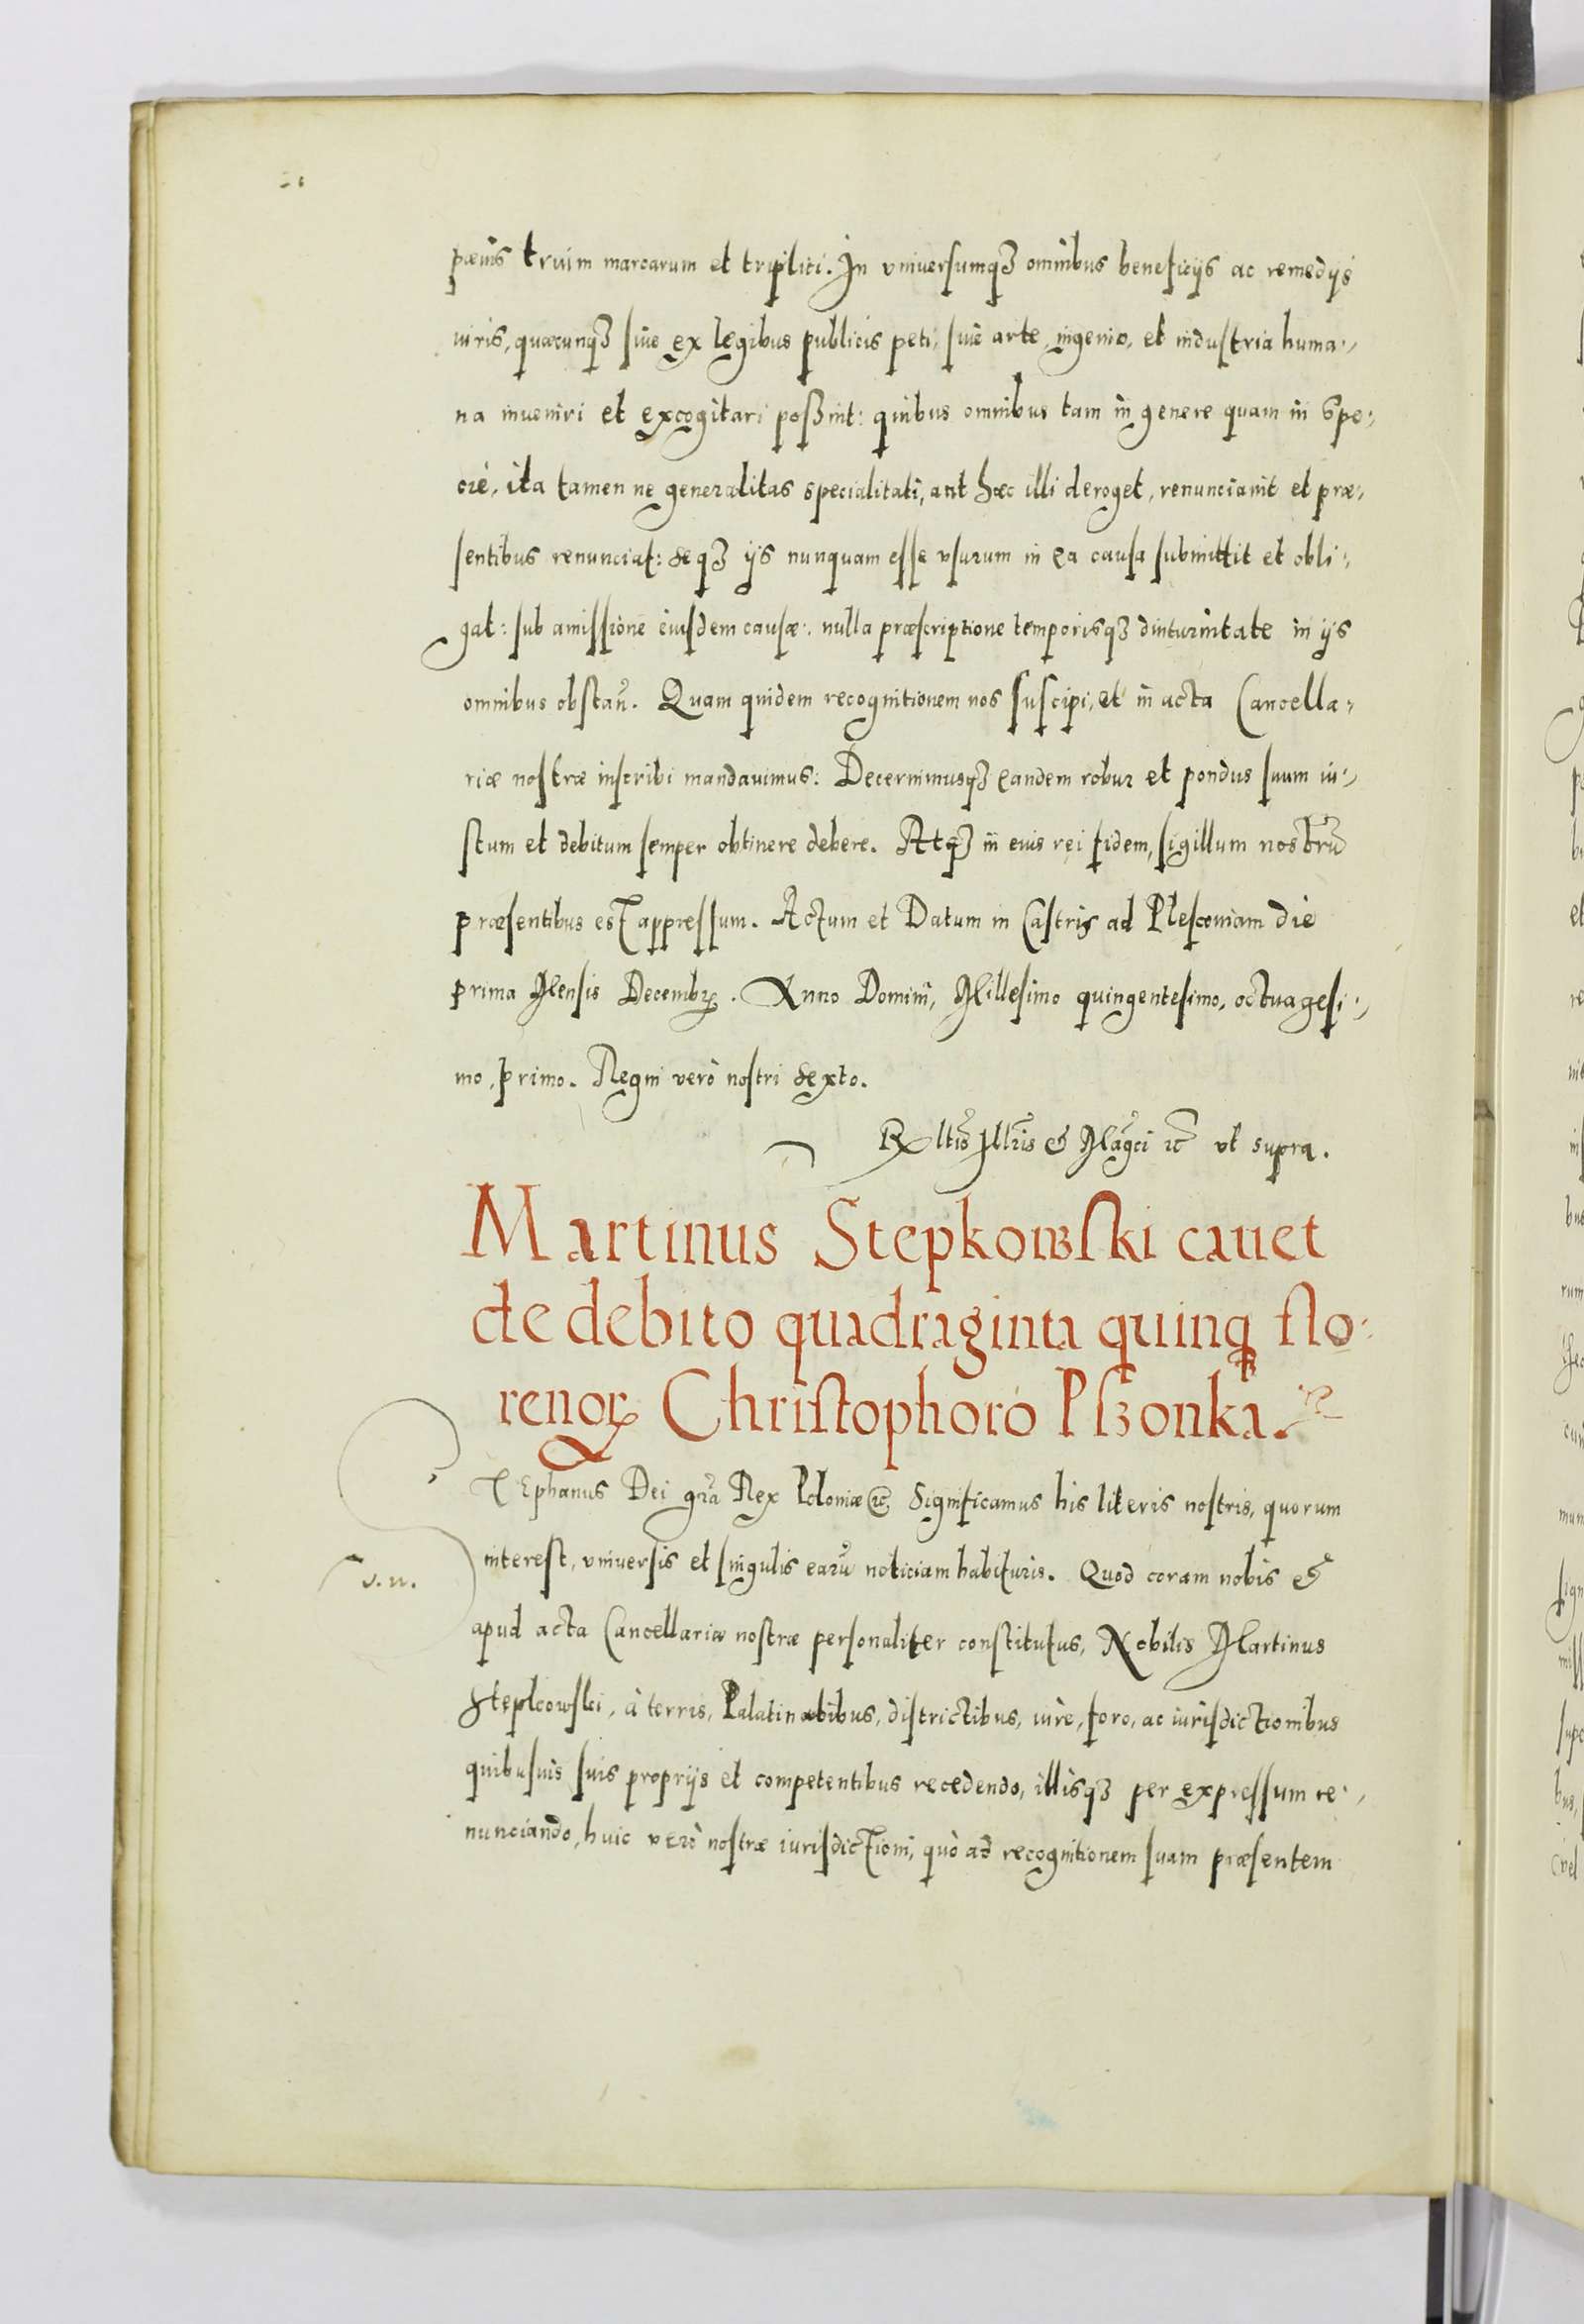 pœnis trium marcarum et triplici. In vniuersumqꝫ omnibus beneficijs ac remedijs
iuris, quæcunqꝫ siue ex legibus publicis peti, siue arte, ingenio, et industria huma-
na inueniri et excogitari poßint: quibus omnibus tam in genere quam in spe-
cie, ita tamen ne generalitas specialitati, aut hæc illi deroget, renunciauit et præ-
sentibus renunciat: seqꝫ ijs nunquam esse vsurum in ea causa submittit et obli-
gat: sub amissione eiusdem causæ: nulla præscriptione temporisqꝫ diuturnitate in ijs
omnibus obstañ. Quam quidem recognitionem nos suscipi, et in acta Cancella-
riæ nostræ inscribi mandauimus: Decernimusqꝫ eandem robur et pondus suum iu-
stum et debitum semper obtinere debere. Atqꝫ in eius rei fidem, sigillum nostrũ
præsentibus est appressum. Actum et Datum in Castris ad Plescouiam die
prima Mensis Decembꝝ. Anno Domini, Millesimo quingentesimo, octuagesi-
mo, primo. Regni verò nostri sexto.
Rltio Illris & Magci ꝛc vt supra.
Martinus Stepkowski cauet
de debito quadraginta quinqꝫ flo-
renoꝝ Christophoro Pszonka.
Tephanus Dei gra Rex Poloniæ ꝛc Significamus his literis nostris, quorum
interest, vniuersis et singulis earũ noticiam habituris. Quod coram nobis &
apud acta Cancellariæ nostræ personaliter constitutus, Nobilis Martinus
Stepkowski, à terris, Palatinatibus, districtibus, iure, foro, ac iurisdictionibus
quibusuis suis proprijs et competentibus recedendo, illisqꝫ per expressum re-
nunciando, huic verò nostræ iurisdictioni, quò ad recognitionem suam præsentem